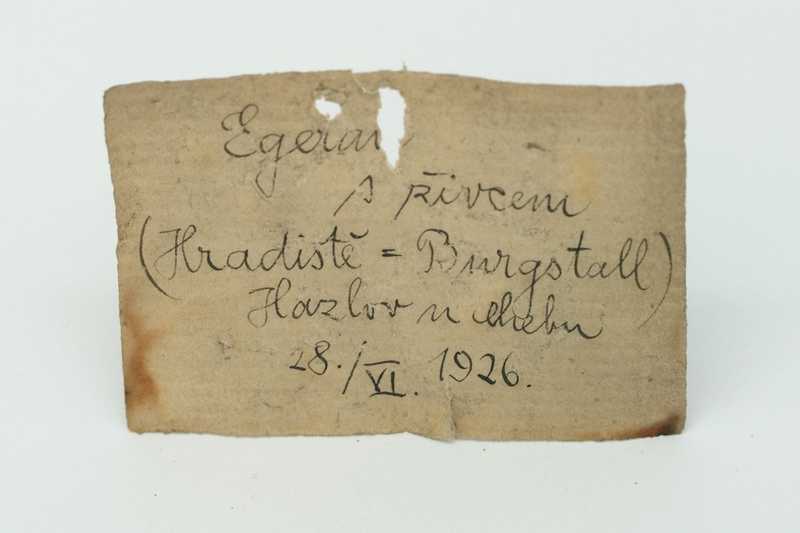 Egeran
s živcem
(Hradiště = Burgstall)
Hazlov u Chebu
28./VI. 1926.